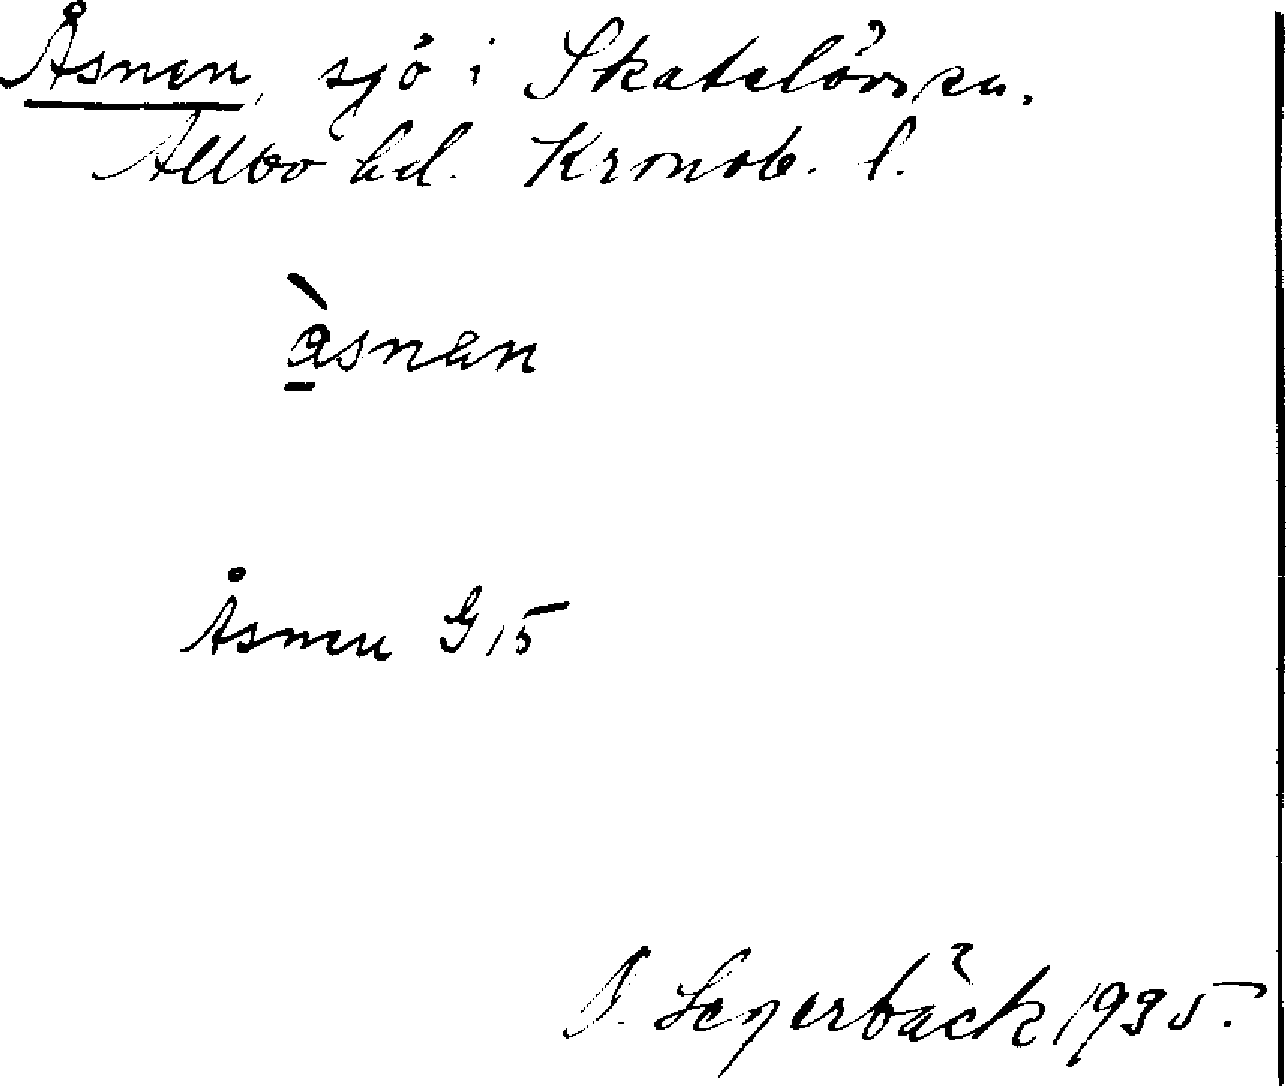 Åsnen, sjö i Skatelövs sn.
Allbo hd. Kronob. l.
åsnan
Åsnen G15
J. Segerbäck 1935.